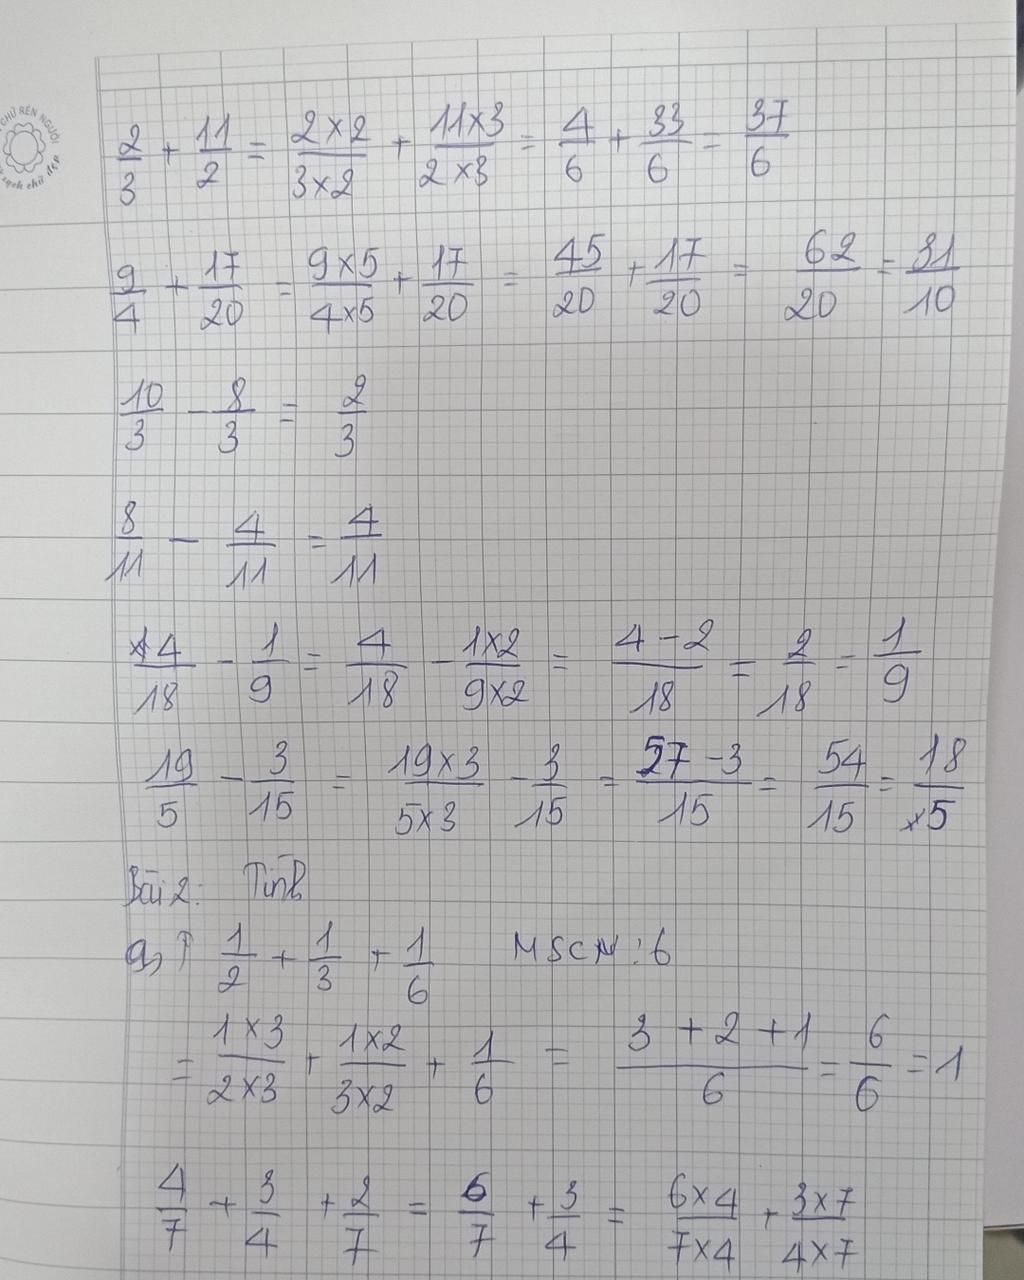 CHỮ RÈN NGƯỜI
sạch chữ đẹp
2/3 + 11/2 = 2×2/3×2 + 11×3/2×3 = 4/6 + 33/6 = 37/6
9/4 + 17/20 = 9×5/4×5 + 17/20 = 45/20 + 17/20 = 62/20 = 31/10
10/3 - 8/3 = 2/3
8/11 - 4/11 = 4/11
4/18 - 1/9 = 4/18 - 1×2/9×2 = 4-2/18 = 2/18 = 1/9
19/5 - 3/15 = 19×3/5×3 - 3/15 = 57-3/15 = 54/15 = 18/5
Bài 2: Tính
a, 1/2 + 1/3 + 1/6 MSCN: 6
= 1×3/2×3 + 1×2/3×2 + 1/6 = 3+2+1/6 = 6/6 = 1
4/7 + 3/4 + 2/7 = 6/7 + 3/4 = 6×4/7×4 + 3×7/4×7